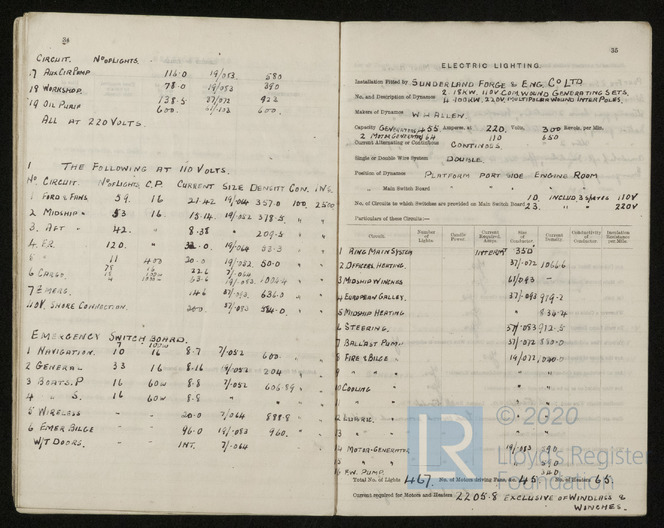 34
CIRCUIT. No OF LIGHTS.
17 AUX CIR PUMP 116.0 19/083. 580
18 WORKSHOP. 78.0 19/083 390
19 OIL PURIF 138.5 37/072 922
600. 61/103 600.
ALL AT 220 VOLTS.
THE FOLLOWING AT 110 VOLTS.
No CIRCUIT. No OF LIGHTS C.P. CURRENT SIZE DENSITY CON. INS.
1 FORD & FANS. 59. 16 21.42 19/064 357.0 100. 2500
2 MIDSHIP 53 16 19/052 378.5
3. AFT 42. 8.38 209.5
4. ER. 120. 19/064
5 11 400 20.0 19/052 50.0
6 CARGO. 16 22.6 7/064
7 EMERG. 146 37/072. 636.0
110V. SHORE CONNECTION. 200. 37/083 584.0
EMERGENCY SWITCH BOARD.
1 NAVIGATION. 10 16 8.7 7/052 600.
2 GENERAL 33 16 8.16 19/052 204
3 BOATS. P 16 60W 8.8 7/052
4 " S. 16 60W 8.8 "
5 WIRELESS - - 20.0 7/064 888.8
6 EMER BILGE - - 96.0 19/083 960.
W/T DOORS. - INT. 7/.064
35
ELECTRIC LIGHTING.
Installation Fitted by SUNDERLAND FORGE & ENG. CO LTD
No. and Description of Dynamos 2. 18KW. 110V COM. WOUND GENERATING SETS.
4 100KW, 220V. MULTIPOLAR WOUND INTER POLES.
Makers of Dynamos W H ALLEN
Capacity GENERATORS 455 Amperes, at 220. Volts, 300 Revols. per Min.
2 MOTOR GENERATORS 164 110 650
Current Alternating or Continuous CONTINOUS.
Single or Double Wire System DOUBLE.
Position of Dynamos PLATFORM PORT SIDE ENGINE ROOM
" Main Switch Board "
No. of Circuits to which Switches are provided on Main Switch Board 10 INCLUD. 3 SPARES 110V
23. " " 220V
Particulars of these Circuits:—
Circuit. Number of Lights. Candle Power. Current Required. Amps. Size of Conductor. Current Density. Conductivity of Conductor. Insulation Resistance per Mile.
1 RING MAIN SYSTEM INTERMT 350
2 OFFICERS HEATING. 37/.072 1066.6
3 MIDSHIP WINCHES 61/093 -
4 EUROPEAN GALLEY. 37/.093 919.2
5 MIDSHIP HEATING " 834.4
6 STEERING. 37/.083 912.5
7 BALLAST PUMP 37/072 880.0
8 FIRE & BILGE 19/072
9 " " " "
10 COOLING " "
" " "
12 LUBRIC. " "
13 " " "
14 MOTOR-GENERATOR 19/083 590
" " 590
16 F.W. PUMP. 340.
Total No. of Lights 467. No. of Motors driving Fans, &c. 45. No. of Heaters 65.
Current required for Motors and Heaters 2205.8 EXCLUSIVE OF WINDLASS & WINCHES.
LR
© 2020
Lloyd's Register
Foundation